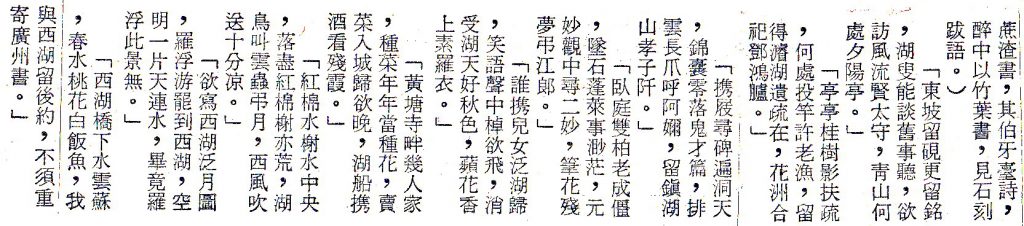 蔗渣書,其伯牙臺詩,
醉中以竹葉書,見石刻
跋語。)
「東坡留硯更留銘
,湖叟能談舊事聽,欲
訪風流賢太守,靑山何
處夕陽亭。」
「亭亭桂樹影扶疏
,何處投竿許老漁,留
得濳湖遺疏在,花洲合
祀鄧鴻臚。」
「携屐尋碑遍洞天
,錦囊零落鬼才篇,排
雲長爪呼阿嬭,留鎭湖
山孝子阡。」
「臥庭雙柏老成僵
,墜石蓬萊事渺茫,元
妙觀中尋二妙,筆花殘
夢弔江郎。」
「誰携兒女泛湖歸
,笑語聲中棹欲飛,消
受湖天好秋色,蘋花香
上素羅衣。」
「黃塘寺畔幾人家
,種菜年年當種花,賣
菜入城歸欲晚,湖船携
酒看殘霞。」
「紅棉水榭水中央
,落盡紅棉榭亦荒,湖
鳥叫雲蟲弔月,西風吹
送十分凉。」
「欲寫西湖泛月圖
,羅浮游罷到西湖,空
明一片天連水,畢竟羅
浮此景無。」
「西湖橋下水雲蘇
,春水桃花白飯魚,我
與西湖留後約,不須重
寄廣州書。」